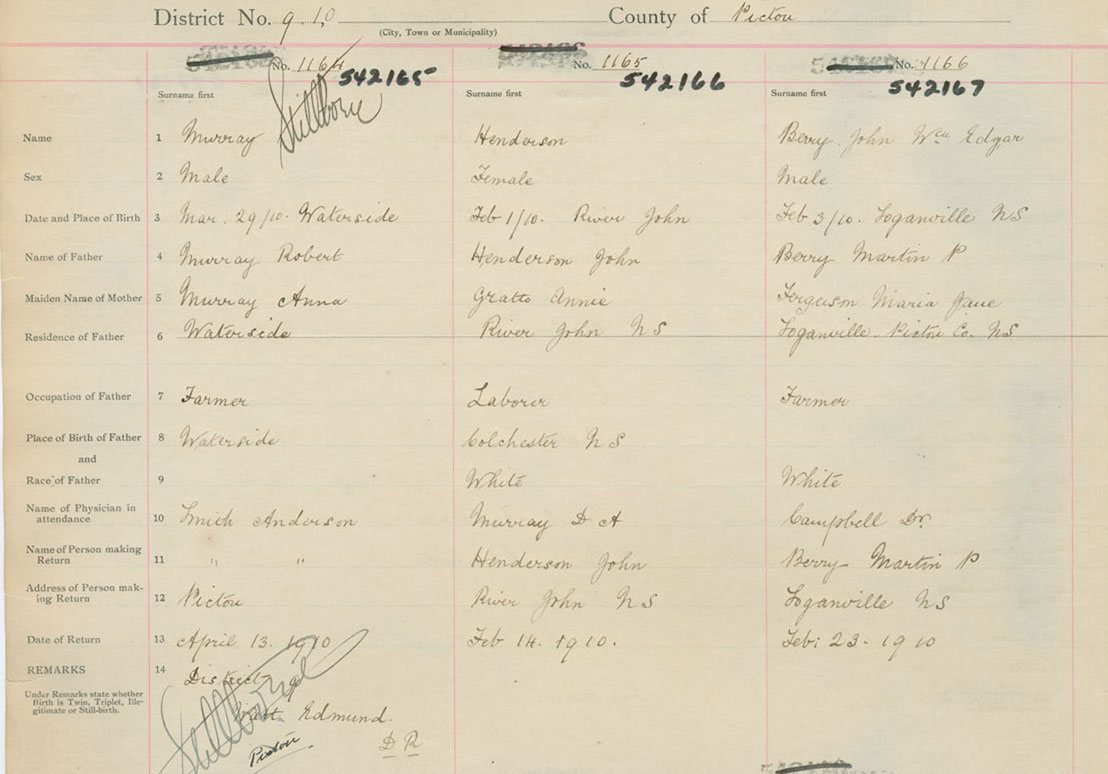 District No. 9.10 County of Pictou
(City, Town or Municipality)
No. 1164 No. 1165 No. 1166
542165 542166 542167
Stillborn
Surname first Surname first Surname first
Name 1 Murray Henderson Berry John Wm Edgar
Sex 2 Male Female Male
Date and Place of Birth 3 Mar. 29/10. Waterside Feb 1/10. River John Feb 3/10. Loganville NS
Name of Father 4 Murray Robert Henderson John Berry Martin P
Maiden Name of Mother 5 Murray Anna Gratto Annie Ferguson Maria Jane
Residence of Father 6 Waterside River John NS Loganville. Pictou Co. NS
Occupation of Father 7 Farmer Laborer Farmer
Place of Birth of Father 8 Waterside Colchester NS
and
Race of Father 9 White White
Name of Physician in
attendance 10 Smith Anderson Murray D A Campbell Dr.
Name of Person making
Return 11 " " Henderson John Berry Martin P
Address of Person mak-
ing Return 12 Pictou River John NS Loganville NS
Date of Return 13 April 13. 1910 Feb 14. 1910. Feb: 23-1910
REMARKS 14 District 9
Under Remarks state whether
Birth is Twin, Triplet, Ille-
gitimate or Still-birth.
Stillborn
Edmund
Pictou D R